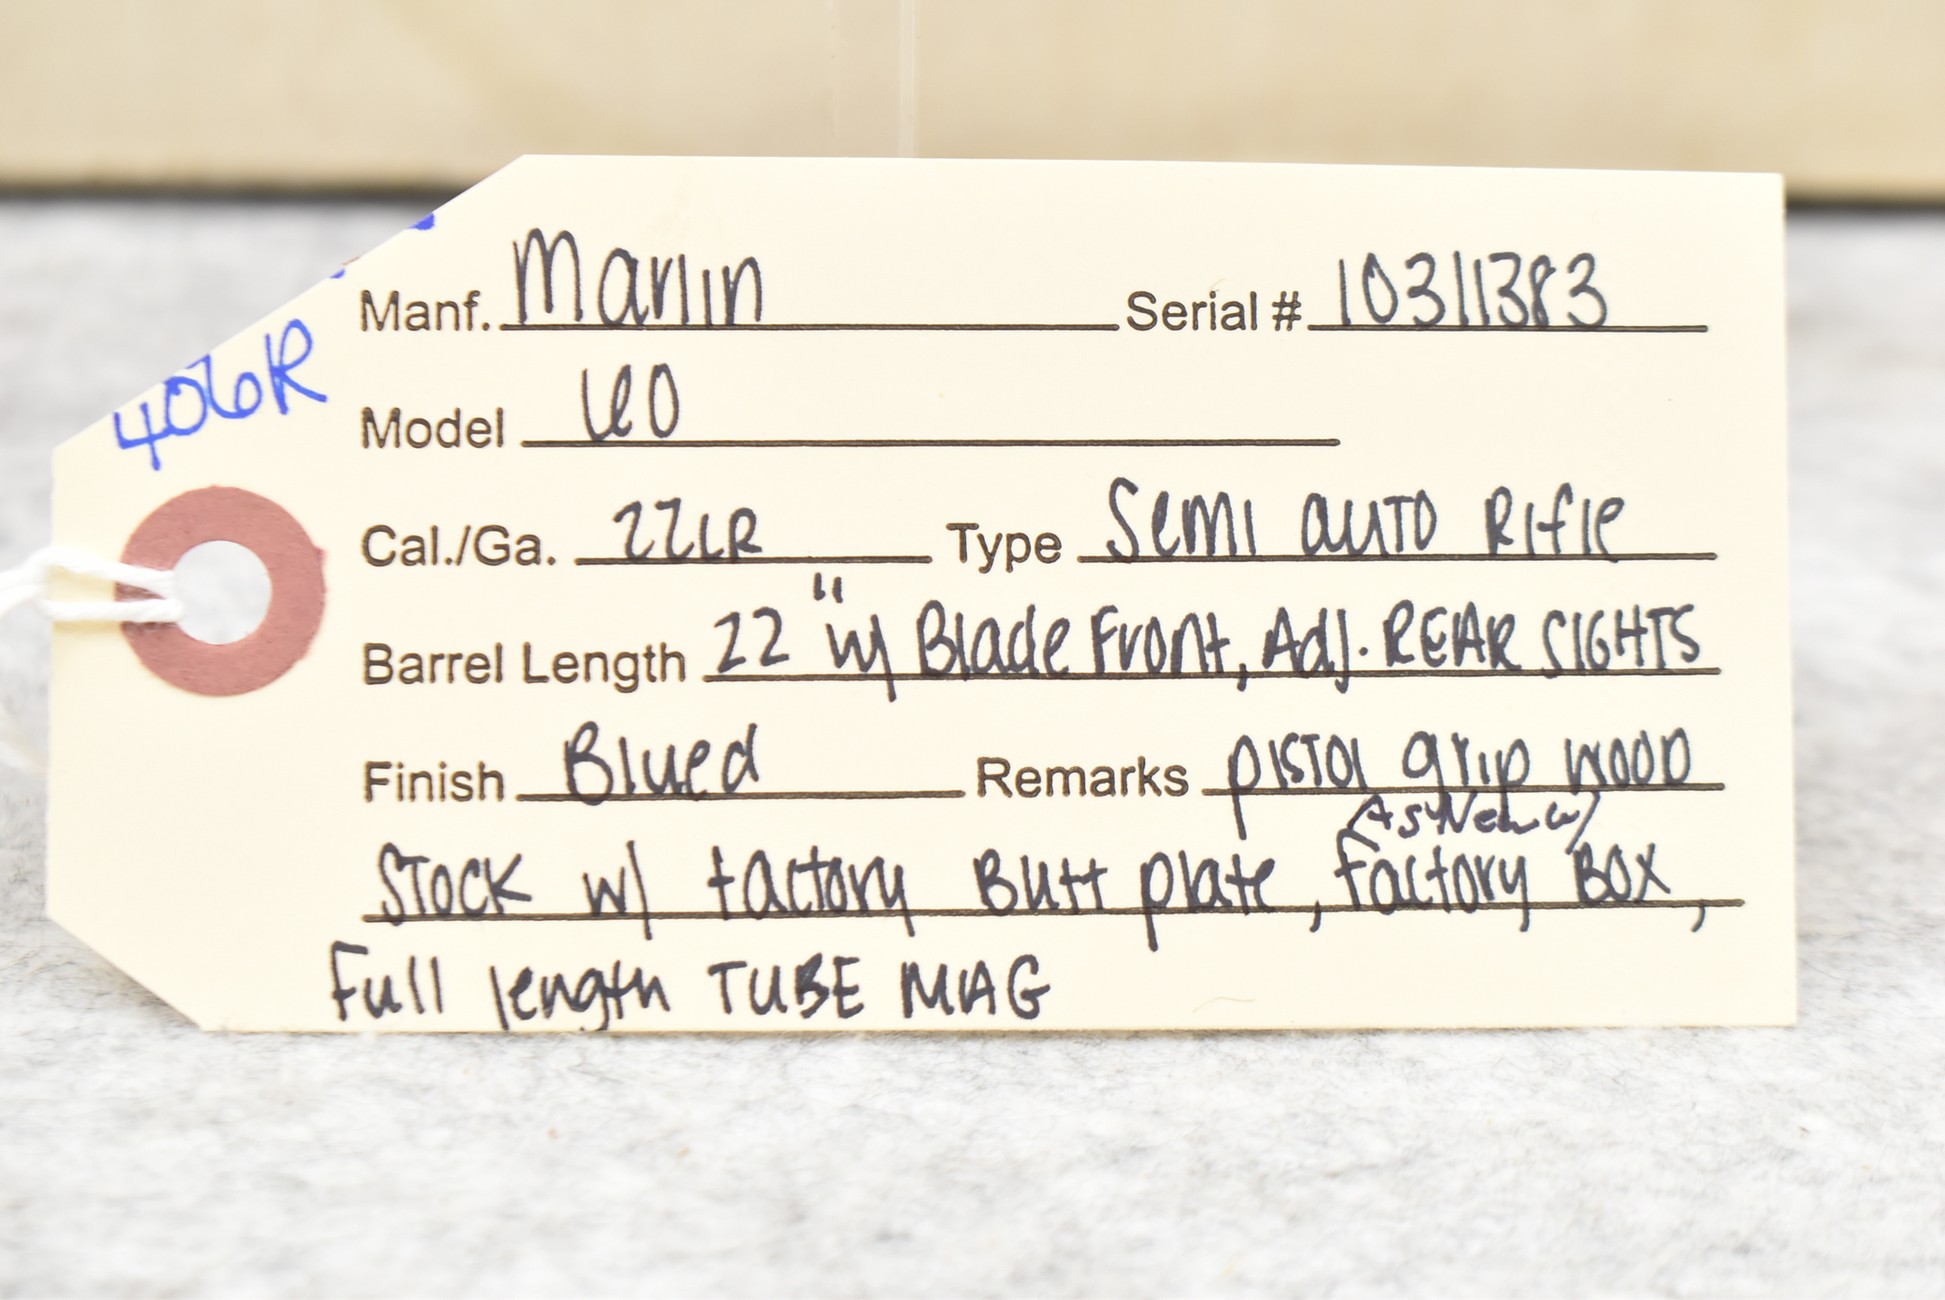 406R
Manf. Marlin Serial # 10311383
Model 60
Cal./Ga. 22LR Type Semi auto Rifle
Barrel Length 22" w/ Blade Front, Adj. REAR SIGHTS
Finish Blued Remarks pistol grip wood
(As New w/
Stock w/ factory Butt plate, factory Box,
Full length TUBE MAG